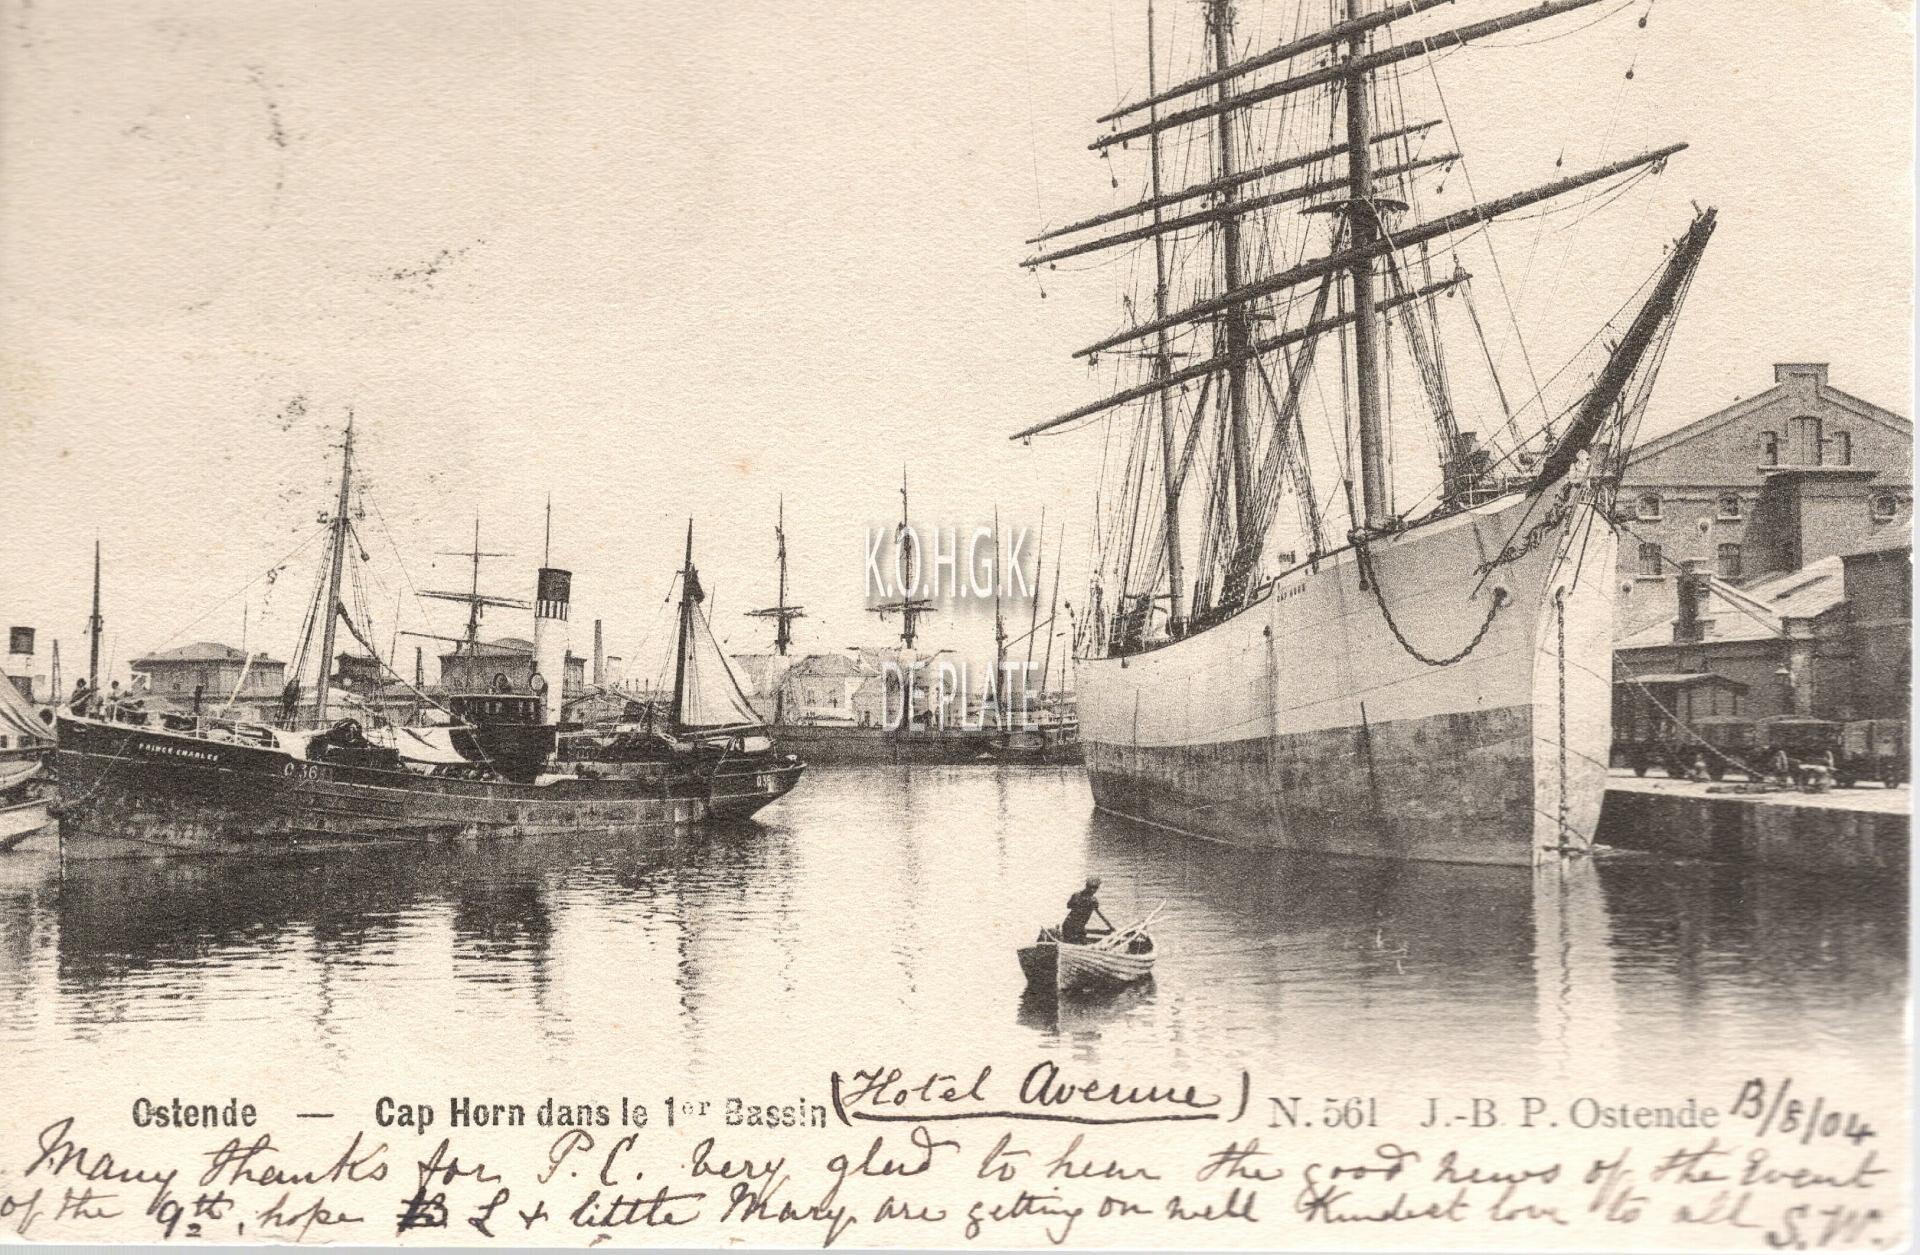 K.O.H.G.K.
DE PLATE
CAP HORN
PRINCE CHARLES
O.36
Ostende — Cap Horn dans le 1er Bassin (Hotel Avenue) N. 561 J.-B. P. Ostende 13/8/04
Many thanks for P.C. very glad to hear the good news of the Event
of the 9th, hope L + little Mary are getting on well Kindest love to all S.W.